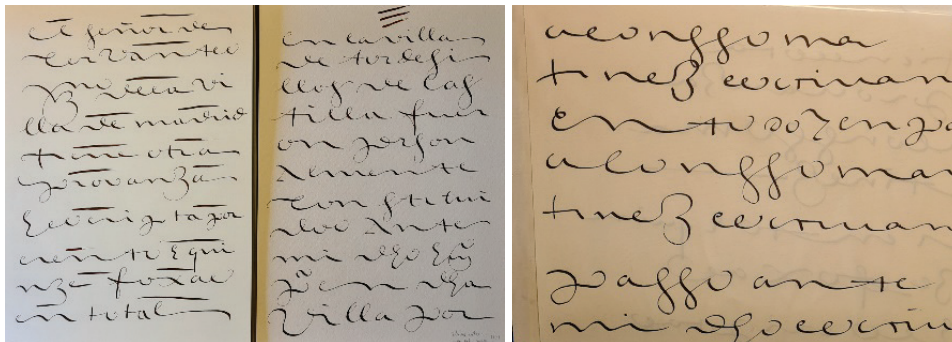 el señor de
cervantes
vº de la vi
lla de madrid
tiene otra
provanza
escripta por
ciento e qui
nze foxas
en total
en la villa
de tordesi
llos de cas
tilla fuer
on person
almente
constitui
dos ante
mi dho
en dha
villa por
alonsso ma
tinez escriuan
en todo en pa
alonsso mar
tinez escriuan
passo ante
mi dho escriu